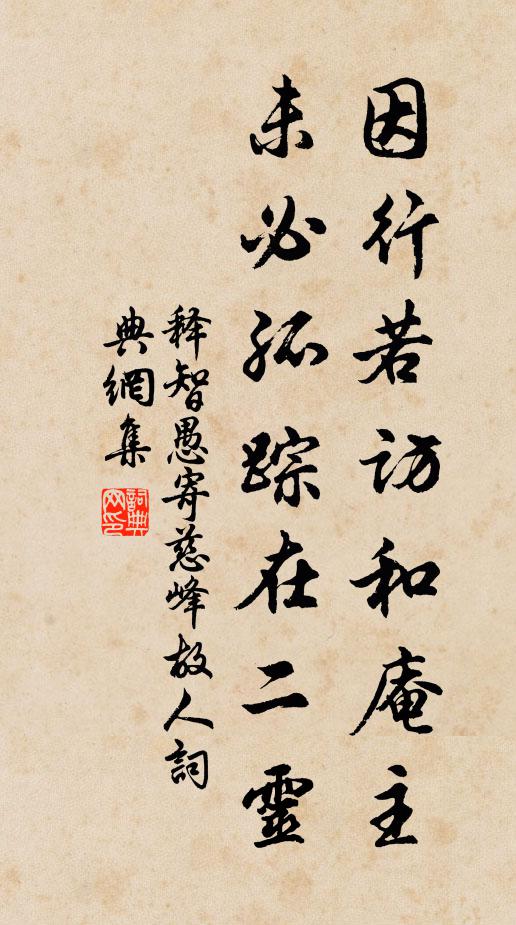 因行若访和庵主
未必孤踪在二靈
释智愚寄慈峰故人詞
典網集
詞典
网印